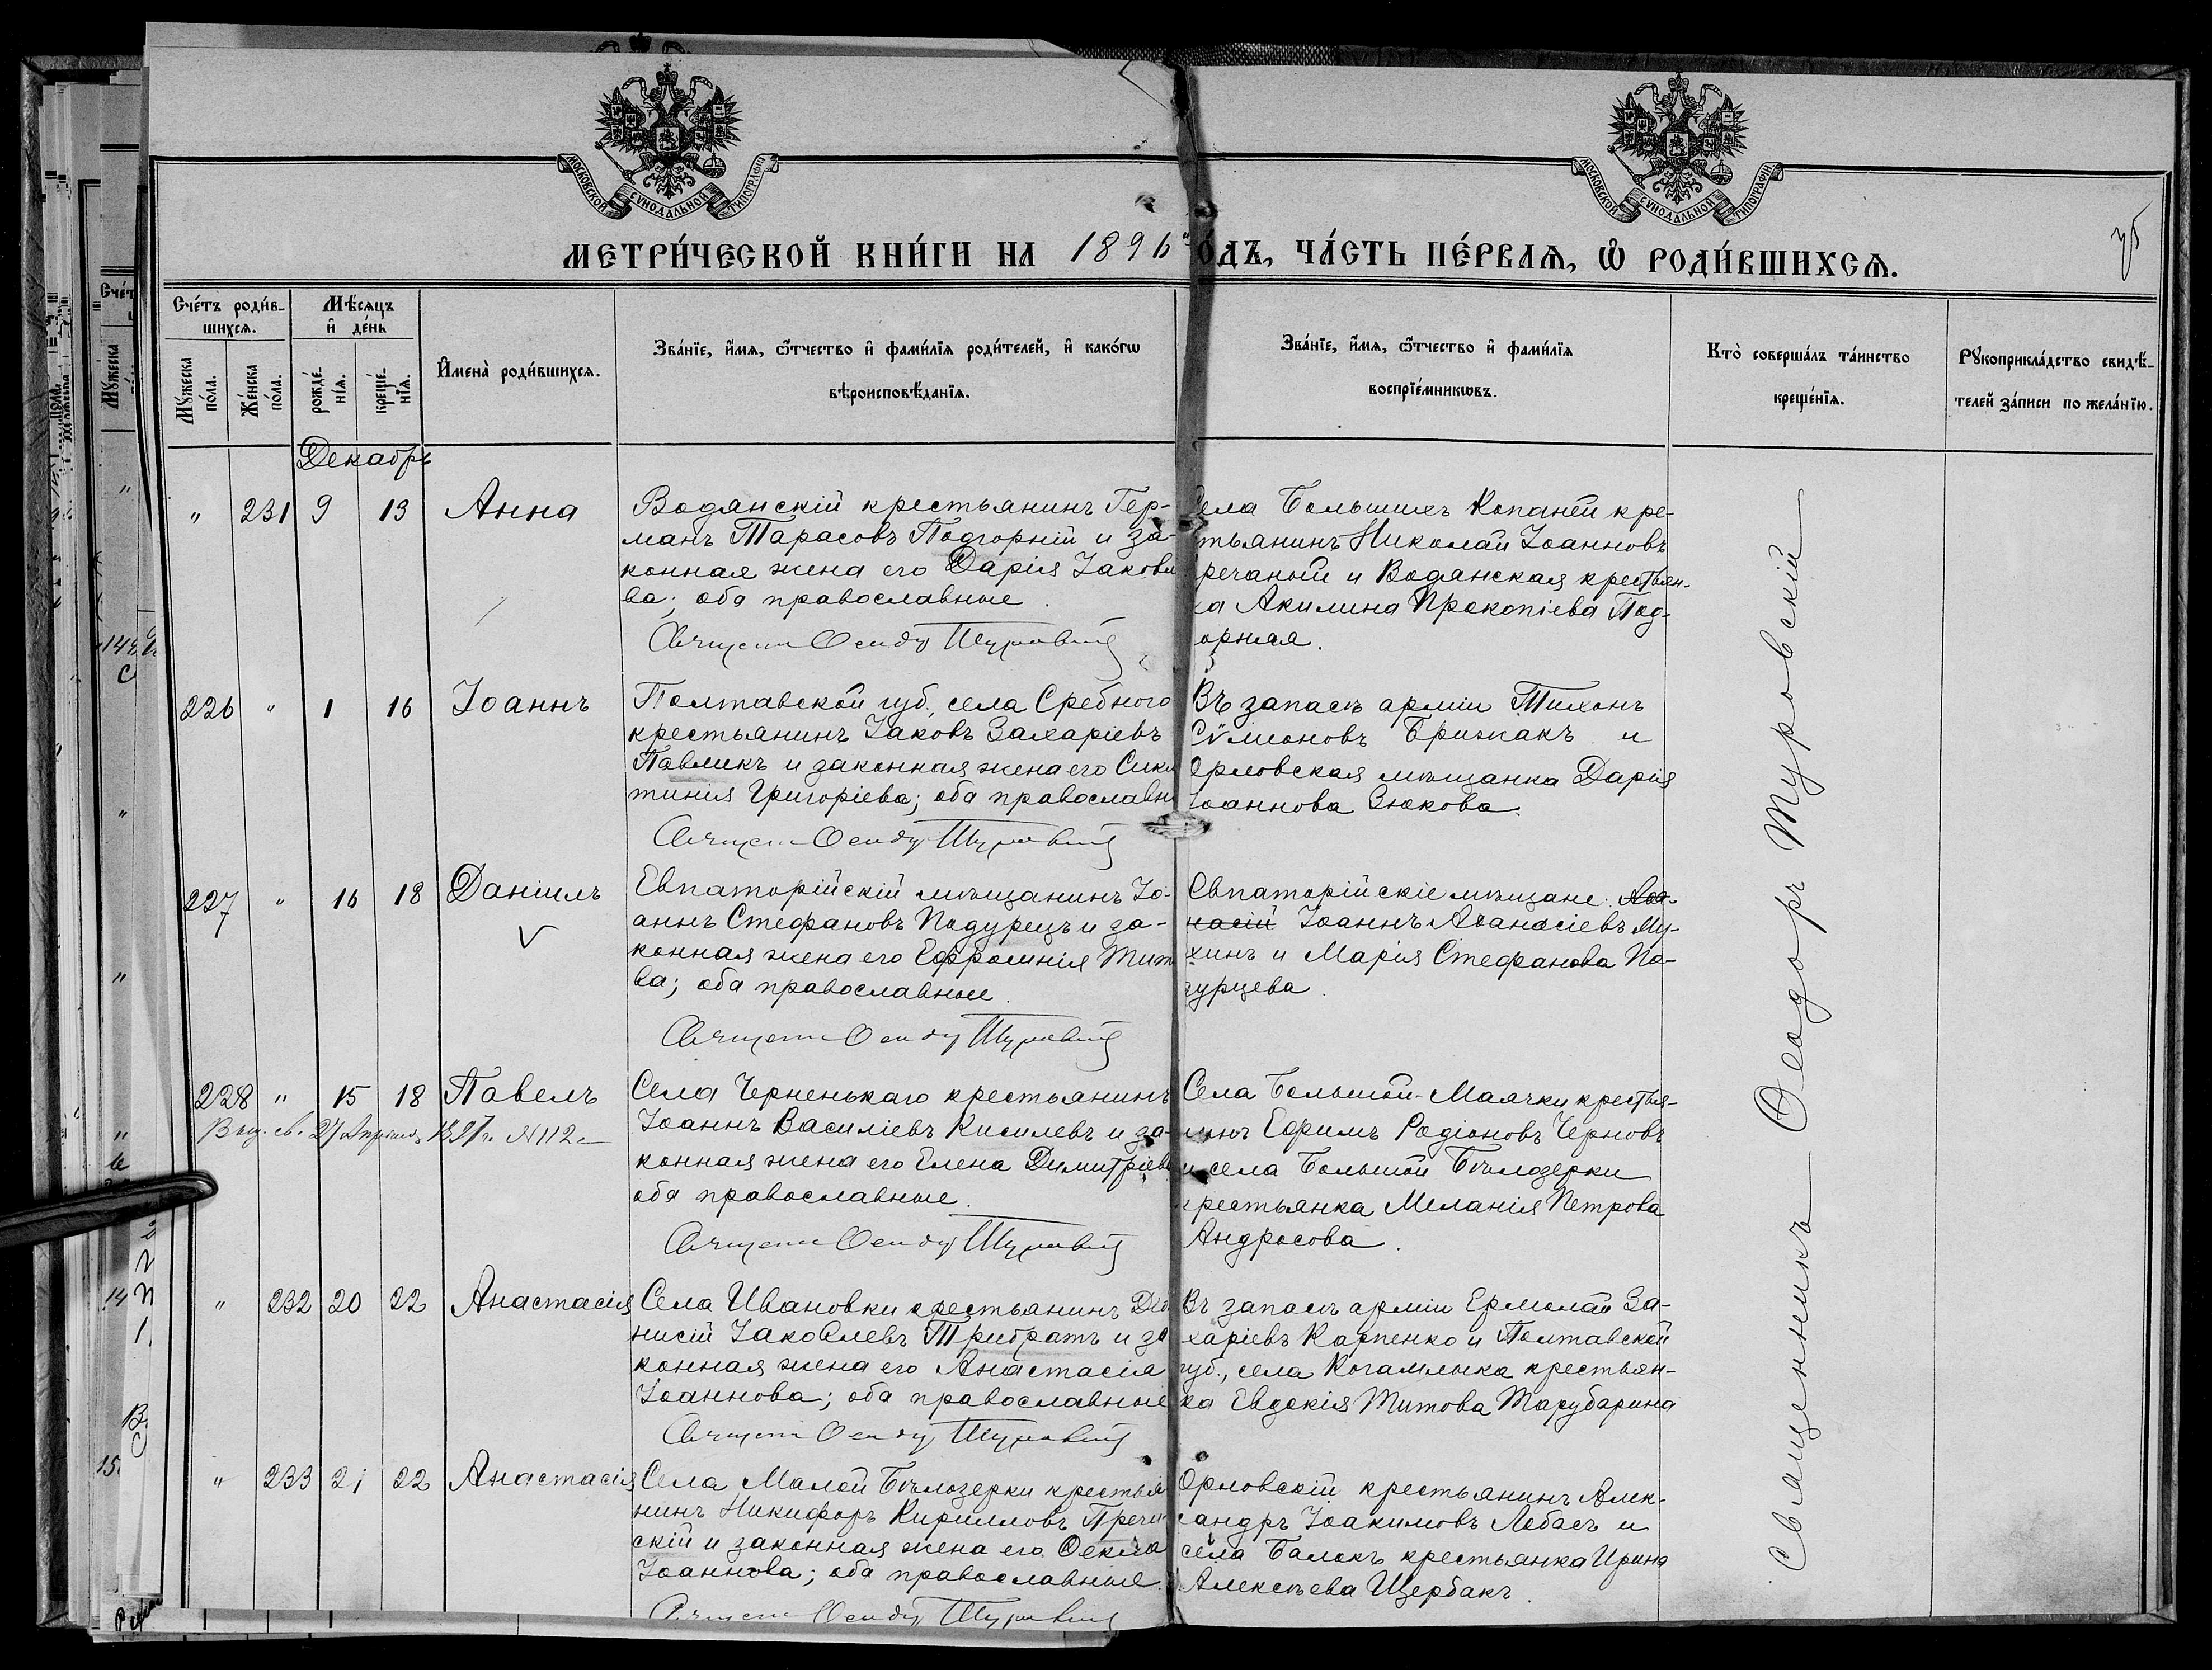 МОСКОВСКОЙ СѴНОДАЛЬНОЙ ТИПОГРАФІИ
МОСКОВСКОЙ СѴНОДАЛЬНОЙ ТИПОГРАФІИ
МЕТРИ́ЧЕСКОЙ КНИ́ГИ НА 1896 ГО́ДЪ, ЧА́СТЬ ПЕ́РВАѦ, Ѡ҆ РОДИ́ВШИХСѦ.
Сче́тъ роди́в-
шихсѧ.
Мѣ́сѧцъ
и҆ де́нь
Мꙋ́жеска
по́ла.
Же́нска
по́ла.
рожде́-
нїѧ.
креще́-
нїѧ.
И҆мена̀ роди́вшихсѧ.
Зва́нїе, и҆́мѧ, ѻ҆́тчество и҆ фами́лїѧ роди́телей, и҆ како́гѡ
вѣроисповѣ́данїѧ.
Зва́нїе, и҆́мѧ, ѻ҆́тчество и҆ фами́лїѧ
воспрїе́мникѡвъ.
Кто̀ соверша́лъ та́инство
креще́нїѧ.
Рꙋкоприкла́дство свидѣ́-
телей за́писи по жела́нїю.
Декабрь
" 231 9 13 Анна
Водянскій крестьянинъ Гер-
манъ Тарасовъ Подгорній и за-
конная жена его Дарія Іаковле
ва; оба православные.
Села Большихъ Копаней кре-
тьянинъ Николай Іоанновъ
речаный и Водянская крестьян-
ка Акилина Прокопіева Под-
орная.
226 " 1 16 Іоаннъ
Полтавской губ., села Сребного
крестьянинъ Іаковъ Захаріевъ
Павликъ и законная жена его Сикл
тикия Григоріева; оба православн
Въ запасѣ арміи Тихонъ
Сѵмеоновъ Брижакъ и
Орловская мѣщанка Дарія
Іоаннова Зюкова.
227 " 16 18 Даніилъ
Евпаторійскій мѣщанинъ Іо-
аннъ Стефановъ Подурецъ и за-
конная жена его Ефросинія Тито
ва; оба православные.
Евпаторійскіе мѣщане: Аѳа-
насій Іоаннъ Аѳанасіевъ Му-
хинъ и Марія Стефанова По-
дурцева.
228 " 15 18 Павелъ
Выд. св. 27 Апрѣля 1897г. N 112
Села Черненькаго крестьянинъ
Іоаннъ Василіевъ Киселевъ и за-
конная жена его Елена Димитріева
оба православные.
Села Большой-Маячки крестья-
нинъ Ефимъ Родіоновъ Черновъ
и села Большой Бѣлозерки
крестьянка Меланія Петрова
Андросова.
" 232 20 22 Анастасія
Села Ивановки крестьянинъ Діо
нисій Іаковлевъ Трибратъ и за
конная жена его Анастасія
Іоаннова; оба православные
Въ запасѣ арміи Ермолай За-
харіевъ Карпенко и Полтавской
губ., села Когамлыка крестьян-
ка Евдокія Титова Тарубарина
" 233 21 22 Анастасія
Села Малой Бѣлозерки крестья
нинъ Никифоръ Кирилловъ Пречи-
скій и законная жена его Ѳекла
Іоаннова; оба православные.
Орловскій крестьянинъ Алек-
сандръ Іоакимовъ Лебасъ и
села Балокъ крестьянка Ирина
Алексѣева Щербакъ.
Священникъ Ѳеодоръ Туровскій